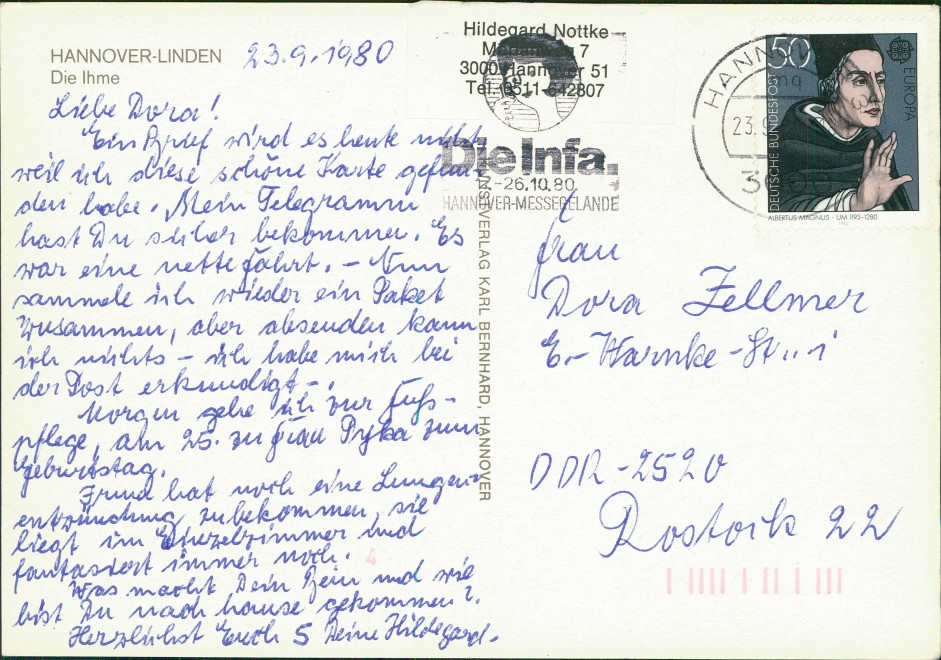 HANNOVER-LINDEN 23.9.1980
Die Ihme
Liebe Dora!
Ein Brief wird es heute nicht
weil ich diese schöne Karte gefun-
den habe. Mein Telegramm
hast Du sicher bekommen. Es
war eine nette Fahrt. – Nun
sammele ich wieder ein Paket
zusammen, aber absenden kann
ich nichts – ich habe mich bei
der Post erkundigt –.
Morgen gehe ich zur Fuß-
pflege, am 25. zu Frau Pyka zum
Geburtstag.
hat noch eine Lungen-
entzündung zubekommen, sie
liegt im Einzelzimmer und
fantasiert immer noch.
Was macht Dein Bein und wie
bist Du nach hause gekommen?
Herzlichst Euch 5 Deine Hildegard.
KUNSTVERLAG KARL BERNHARD, HANNOVER
Hildegard Nottke
7
3000 Hannover 51
Tel. 0511-642807
Die Infa.
-26.10.80
HANNOVER-MESSEGELÄNDE
HANNOV
23.9
50
DEUTSCHE BUNDESPOST
EUROPA
ALBERTUS MAGNUS · UM 1193-1280
Frau
Dora Zellmer
E.-Warnke-Str. 1
DDR-2520
Rostock 22
4